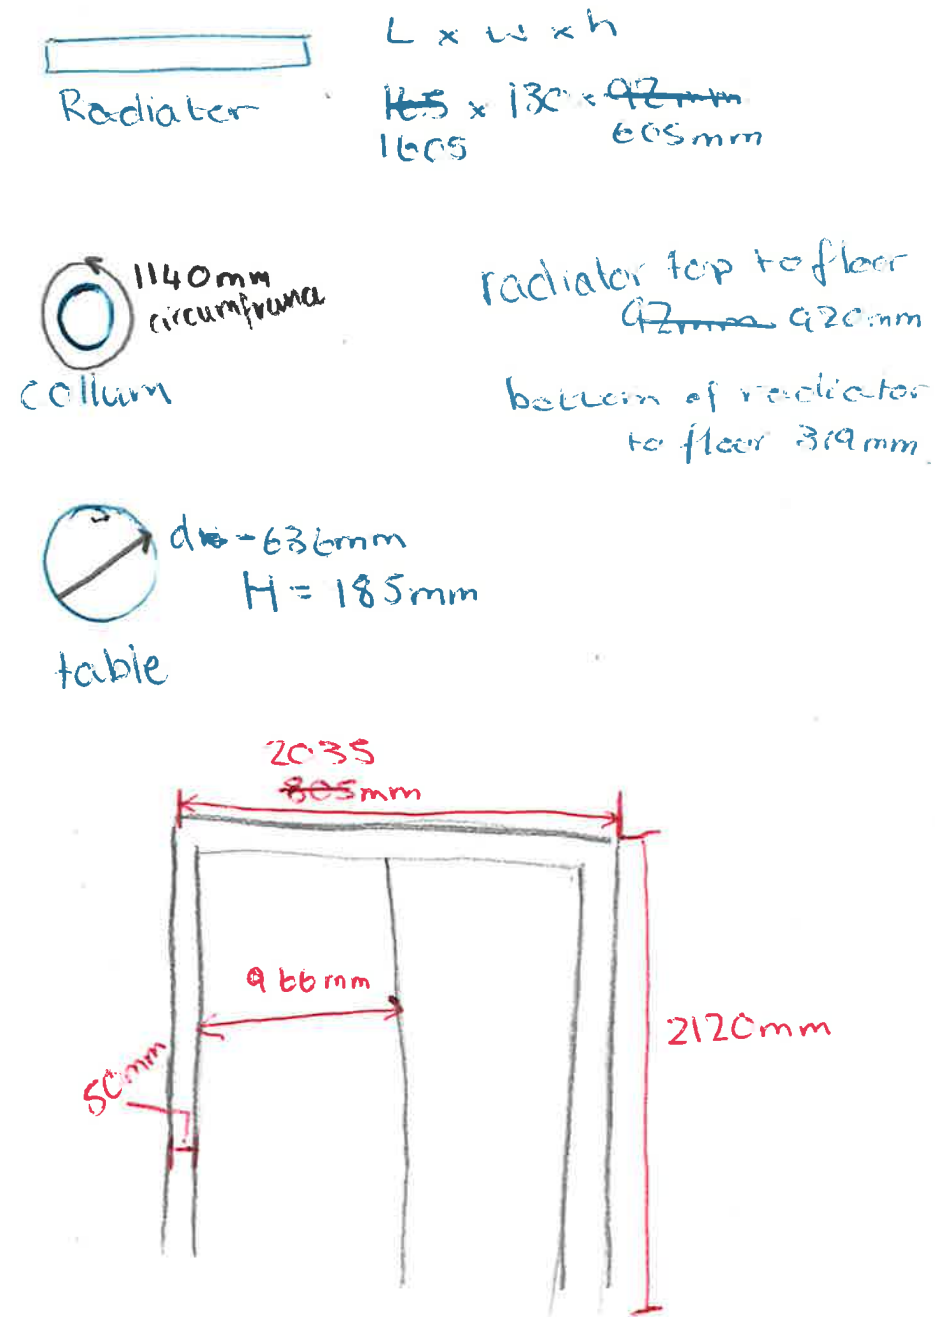 L x w x h
Radiater
165 x 130 x 92mm
1605
605mm
1140mm
circumfrance
collum
radiator top to floor
92mm 920mm
bottom of radiator
to floor 319mm
d - 636mm
H = 185mm
table
2035
805mm
966mm
50mm
2120mm